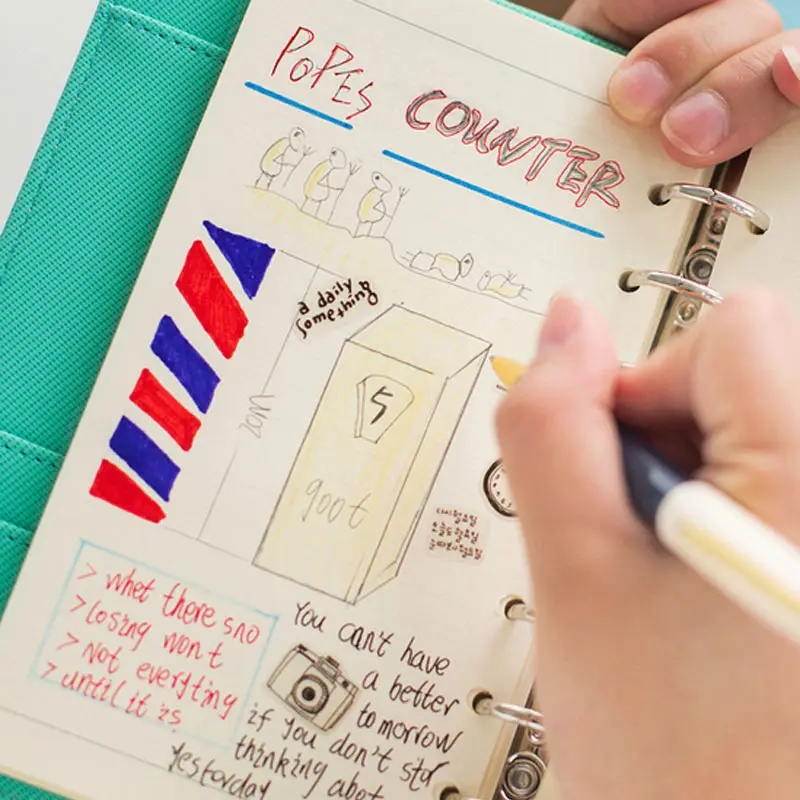 POPES COUNTER
a daily
something
20M
5
900t
> whet there sno
> losing won t
> Not everyting
> until it is
You can't have
a better
tomorrow
if you don't stor
thinking abot
yesterday